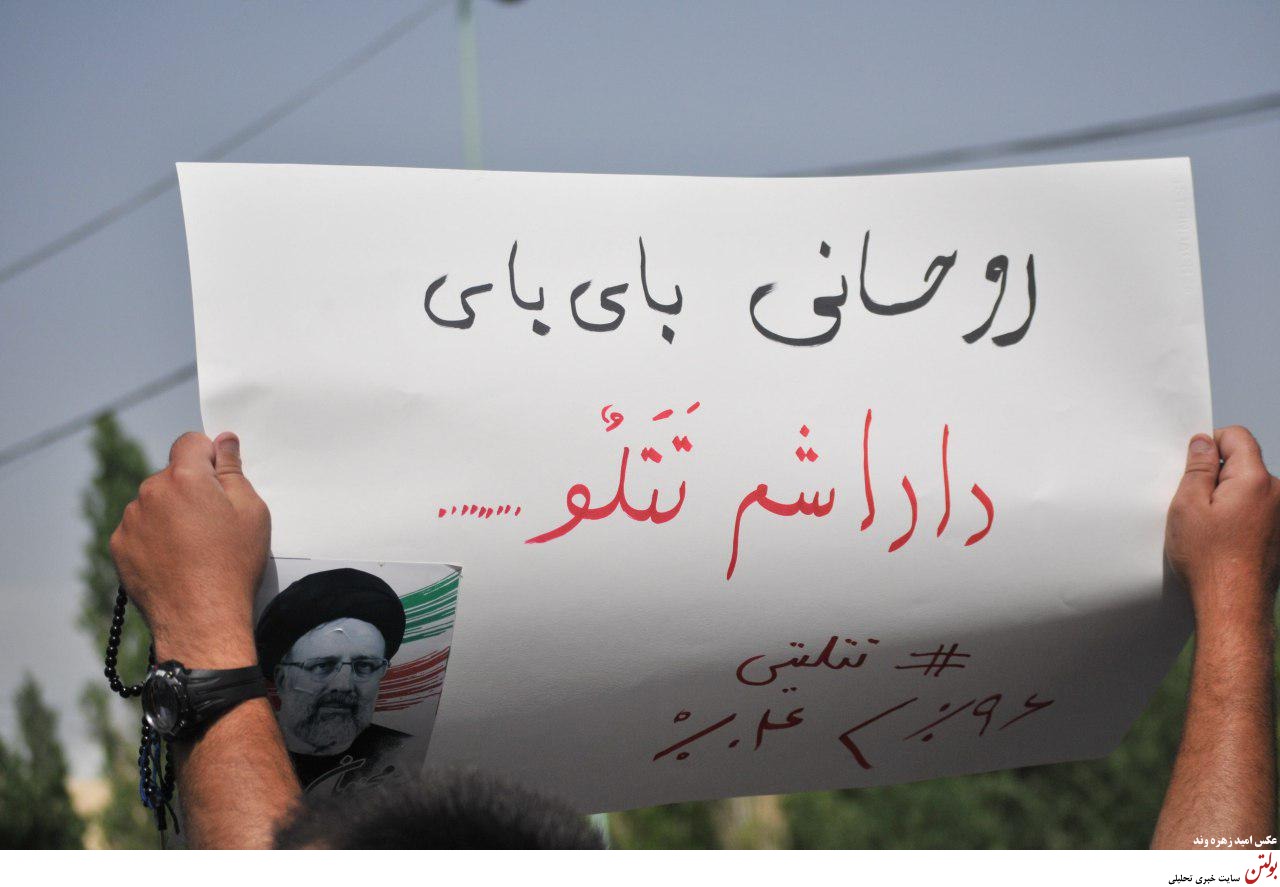 روحانی بای بای
داراشم تَتَلُو ..........
# تتلیتی
۹۶٪ > ۴٪
عکس امید زهره وند
بولتن سایت خبری تحلیلی